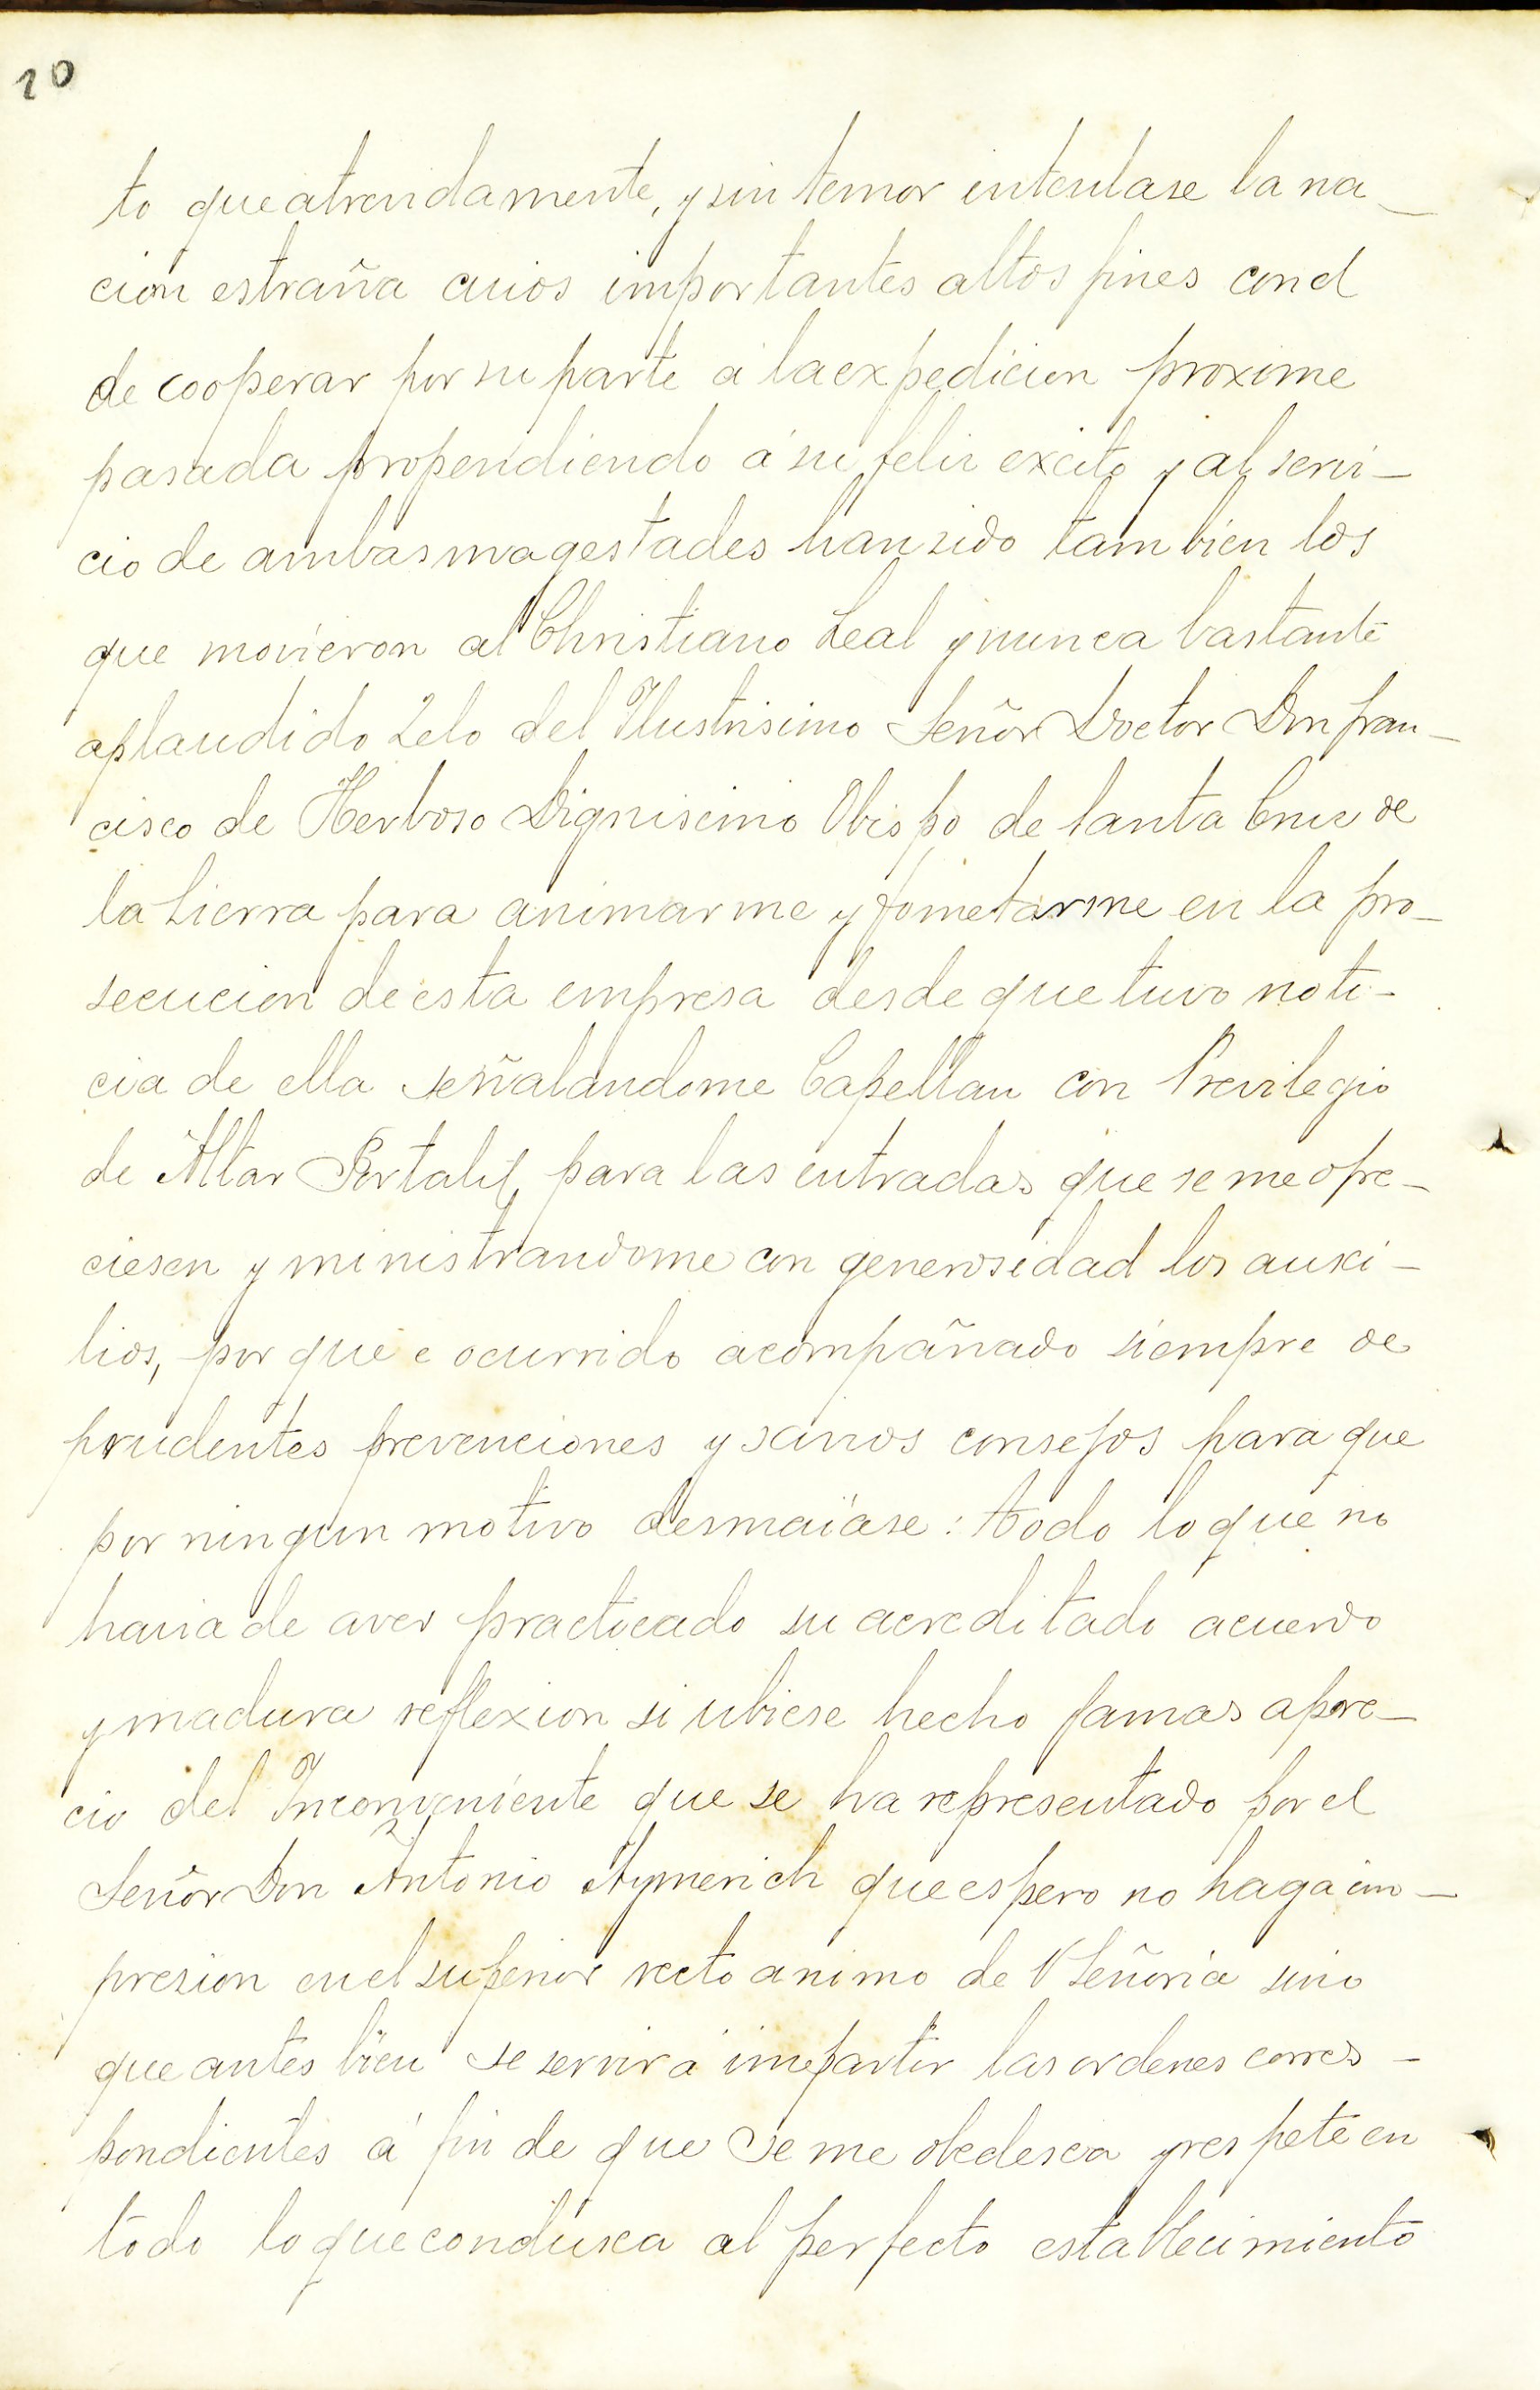 20
to que atrendamente, y sin temor intentase la na_
cion estraña cuios importantes altos fines con el
de cooperar por su parte á la expedicion proxime
pasada propendiendo á su feliz excito y al servi-
cio de ambas magestades han sido tambien los
que movieron al Christiano Leal y nunca bastante
aplaudido Zelo del Ilustrisimo Señor Doctor Don fran-
cisco de Herboso Dignisimo Obispo de Santa Cruz de
la Sierra para animarme y fometarme en la pro-
secucion de esta empresa desde que tuvo noti-
cia de ella señalandome Capellan con Previlegio
de Altar Portatil, para las entradas que se me ofre-
ciesen y ministrandome con generosidad los auxi-
lios, por que e ocurrido acompañado siempre de
prudentes prevenciones y sanos consejos para que
por ningun motivo desmaiáse: todo lo que no
havia de aver practicado su acreditado acuerdo
y madura reflexion si ubiese hecho jamas apre-
cio del Inconveniente que se ha representado por el
Señor Don Antonio Aymerich que espero no haga im-
presion en el superior recto animo de V Señoria sino
que antes bien se servirá impartir las ordenes corres-
pondientes á fin de que se me obedesca y respete en
todo lo que condusca al perfecto establecimiento